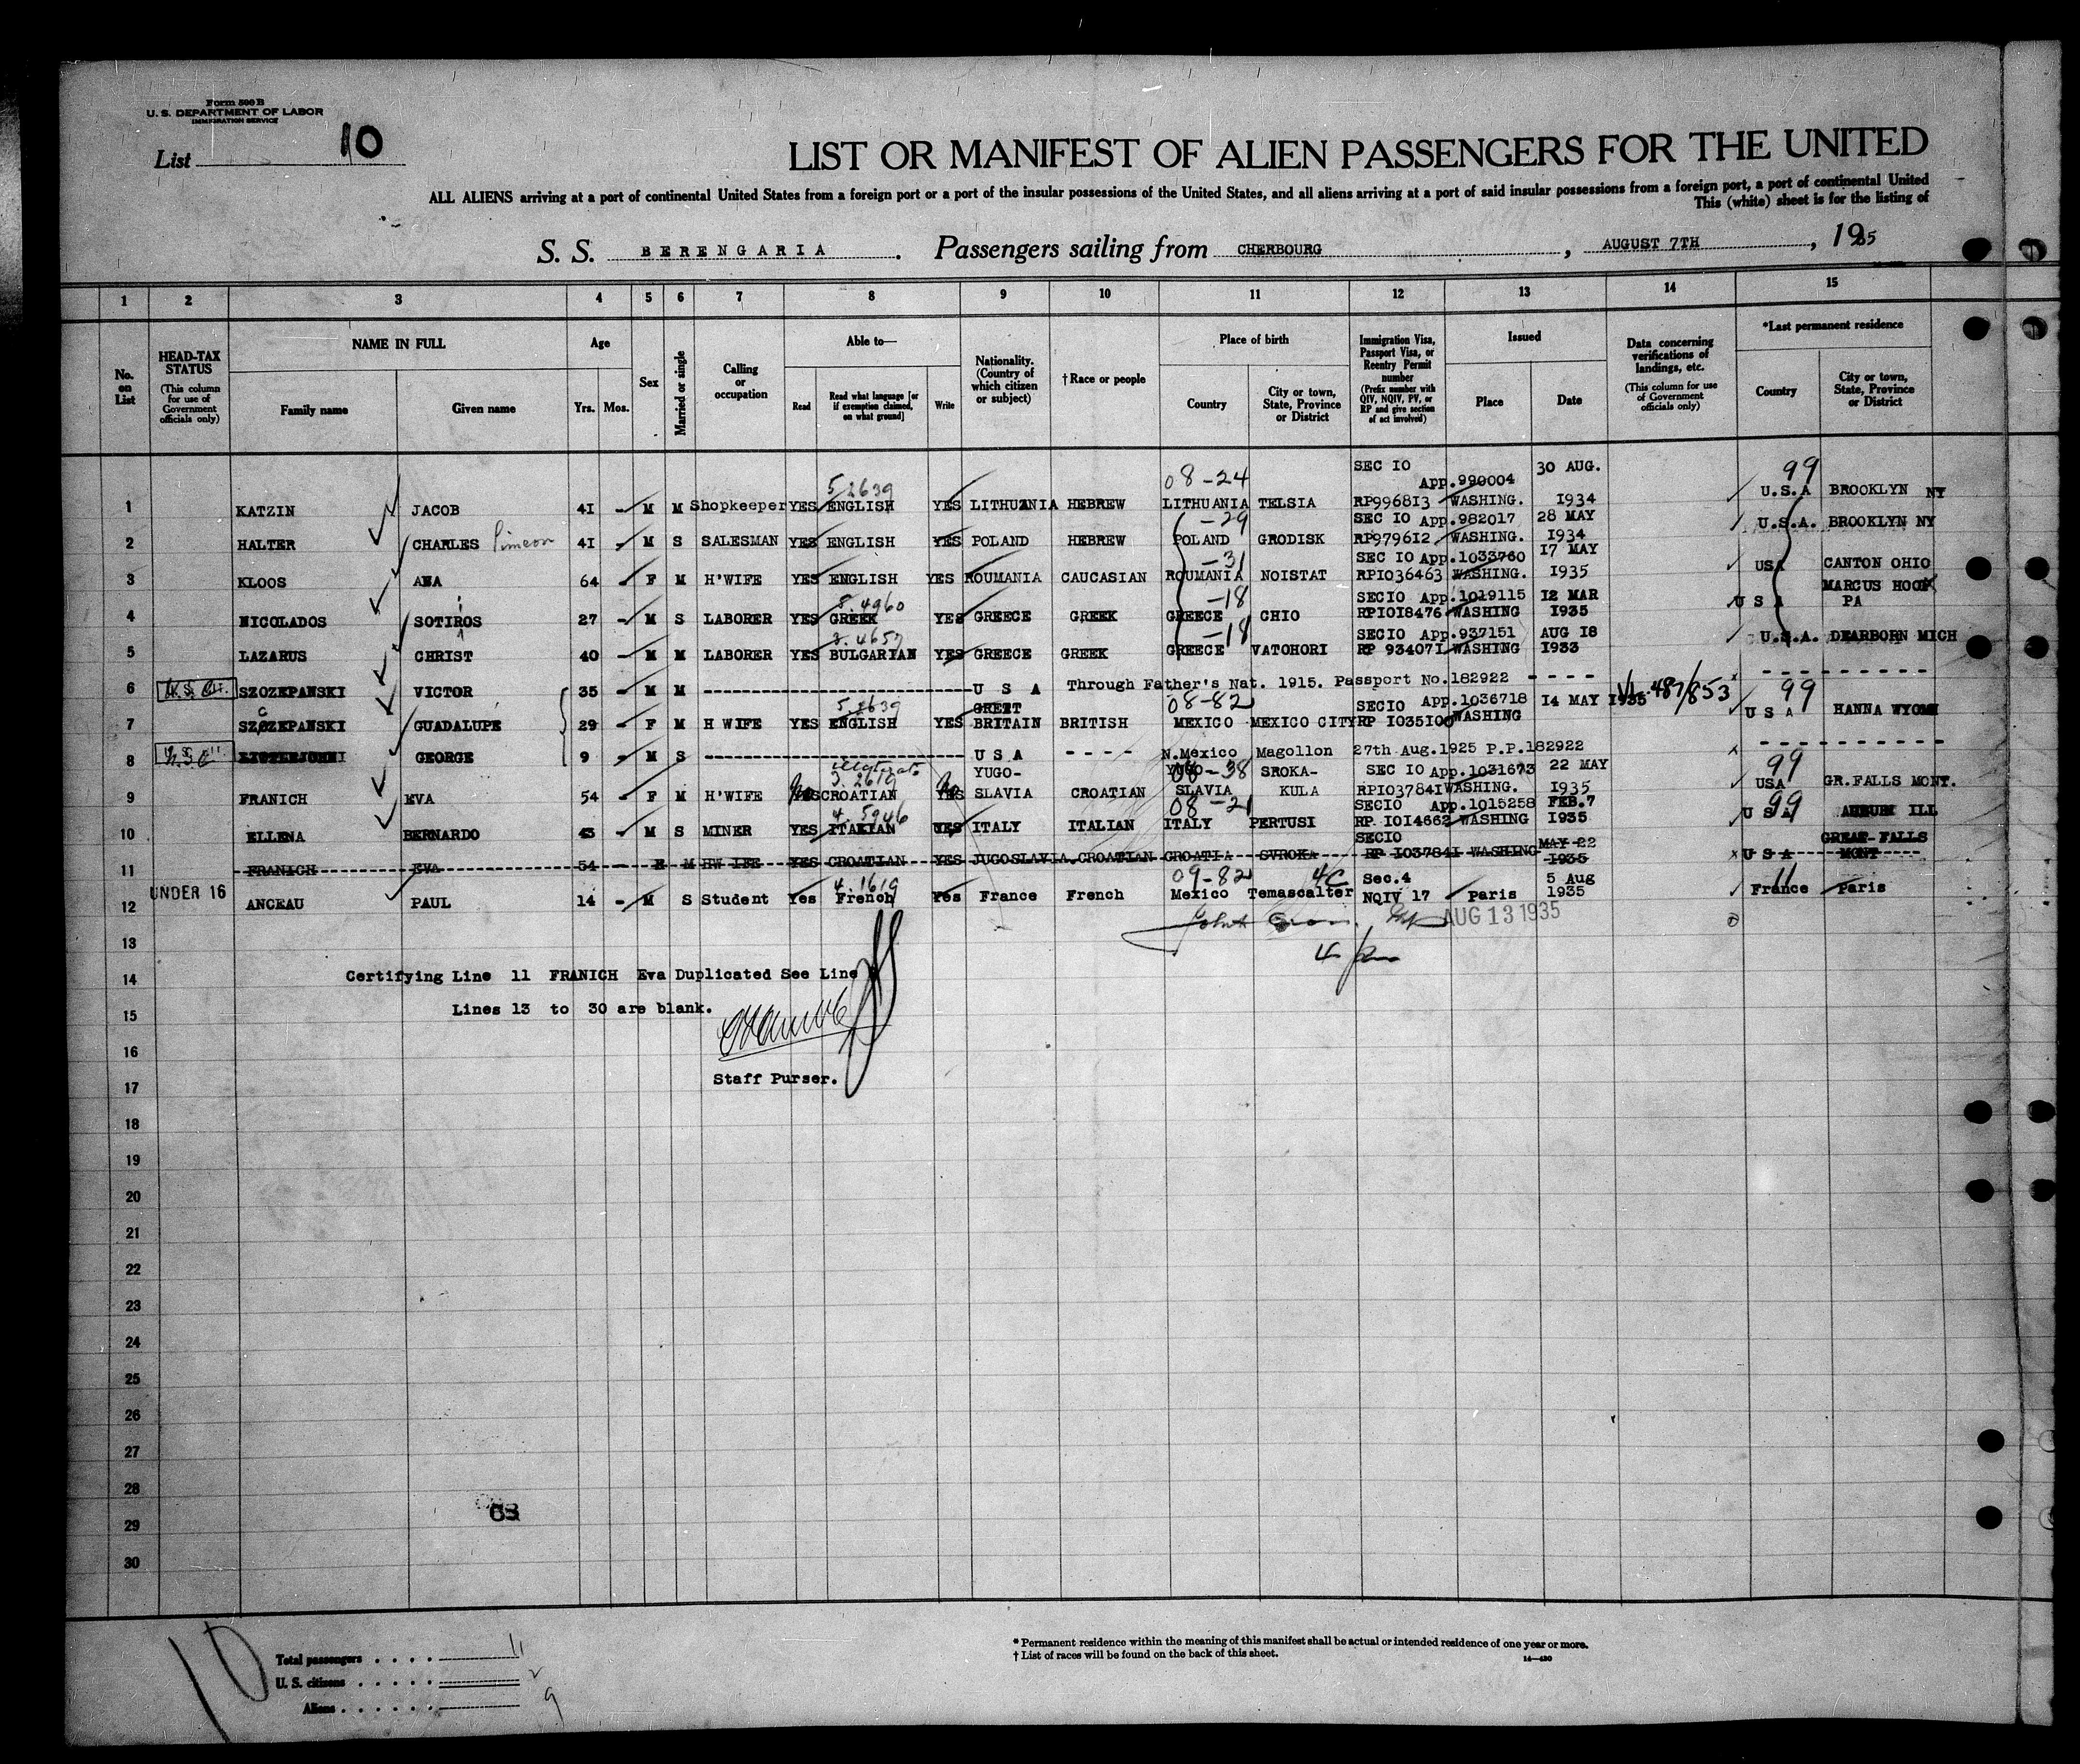 Form 500 B
U. S. DEPARTMENT OF LABOR
IMMIGRATION SERVICE
List 10
LIST OR MANIFEST OF ALIEN PASSENGERS FOR THE UNITED
ALL ALIENS arriving at a port of continental United States from a foreign port or a port of the insular possessions of the United States, and all aliens arriving at a port of said insular possessions from a foreign port, a port of continental United
This (white) sheet is for the listing of
S. S. BERENGARIA. Passengers sailing from CHERBOURG, AUGUST 7TH, 1935
1 2 3 4 5 6 7 8 9 10 11 12 13 14 15
No. on List
HEAD-TAX STATUS (This column for use of Government officials only)
NAME IN FULL Family name Given name
Age Yrs. Mos.
Sex
Married or single
Calling or occupation
Able to— Read Read what language [or if exemption claimed, on what ground] Write
Nationality. (Country of which citizen or subject)
† Race or people
Place of birth Country City or town, State, Province or District
Immigration Visa, Passport Visa, or Reentry Permit number (Prefix number with QIV, NQIV, PV, or RP and give section of act involved)
Issued Place Date
Data concerning verifications of landings, etc. (This column for use of Government officials only)
*Last permanent residence Country City or town, State, Province or District
5 2639 08-24 SEC IO App.990004 30 AUG. 99
1 KATZIN JACOB 4I - M M Shopkeeper YES ENGLISH YES LITHUANIA HEBREW LITHUANIA TELSIA RP9968I3 WASHING. I934 U.S.A BROOKLYN NY
-29 SEC IO App.982017 28 MAY
2 HALTER CHARLES Simeon 4I - M S SALESMAN YES ENGLISH YES POLAND HEBREW POLAND GRODISK RP9796I2 WASHING. I934 U.S.A. BROOKLYN NY
-31 SEC IO App.1033760 I7 MAY
3 KLOOS ANA 64 - F M H'WIFE YES ENGLISH YES ROUMANIA CAUCASIAN ROUMANIA NOISTAT RPI036463 WASHING. I935 USA CANTON OHIO
8.4960 -18 SECIO App.1019115 I2 MAR MARCUS HOOK
4 NICOLADOS SOTIROS 27 - M S LABORER YES GREEK YES GREECE GREEK GREECE CHIO RPI0I8476 WASHING I935 U S A PA
3.4657 -18 SECIO App.937151 AUG I8
5 LAZARUS CHRIST 40 - M M LABORER YES BULGARIAN YES GREECE GREEK GREECE VATOHORI RP 93407I WASHING I933 U.S.A. DEARBORN MICH
6 SZOZEPANSKI VICTOR 35 - M M ---------- U S A Through Father's Nat. 1915. Passport No.182922 - - - -
5.2639 GREAT 08-82 SECIO App.1036718 I4 MAY I935 VL.487/853 99
7 SZCZEPANSKI GUADALUPE 29 - F M H WIFE YES ENGLISH YES BRITAIN BRITISH MEXICO MEXICO CITY RP I035I00 WASHING U S A HANNA WYOM
8 GEORGE 9 - M S ---------- U S A - - - - N.Mexico Magollon 27th Aug.1925 P.P.182922
illiterate 3.2619 YUGO- YUGO- 08-38 SROKA- SEC IO App.1031673 22 MAY 99
9 FRANICH EVA 54 - F M H'WIFE No YES CROATIAN No YES SLAVIA CROATIAN SLAVIA KULA RPI03784I WASHING. I935 USA GR.FALLS MONT.
4.5946 08-21 SECIO App.1015258 FEB.7 99
10 ELLENA BERNARDO 43 - M S MINER YES ITALIAN YES ITALY ITALIAN ITALY PERTUSI RP I0I4662 WASHING I935 U S A AUBURN ILL
SECIO MAY 22 GREAT FALLS
11 FRANICH EVA 54 - F M HW IFE YES CROATIAN YES JUGOSLAVIA CROATIAN CROATIA SVROKA RP I03784I WASHING I935 U S A MONT
UNDER 16 4.1619 09-82 4C Sec.4 5 Aug 11
12 ANCEAU PAUL 14 - M S Student Yes French Yes France French Mexico Temascalter NQIV 17 Paris 1935 France Paris
AUG 13 1935
13
14 Certifying Line 11 FRANICH Eva Duplicated See Line 9
15 Lines 13 to 30 are blank.
16
17 Staff Purser.
18
19
20
21
22
23
24
25
26
27
28
29
30
63
10
Total passengers . . . . 11
U. S. citizens . . . . . 2
Aliens . . . . . . 9
* Permanent residence within the meaning of this manifest shall be actual or intended residence of one year or more.
† List of races will be found on the back of this sheet.
14—430